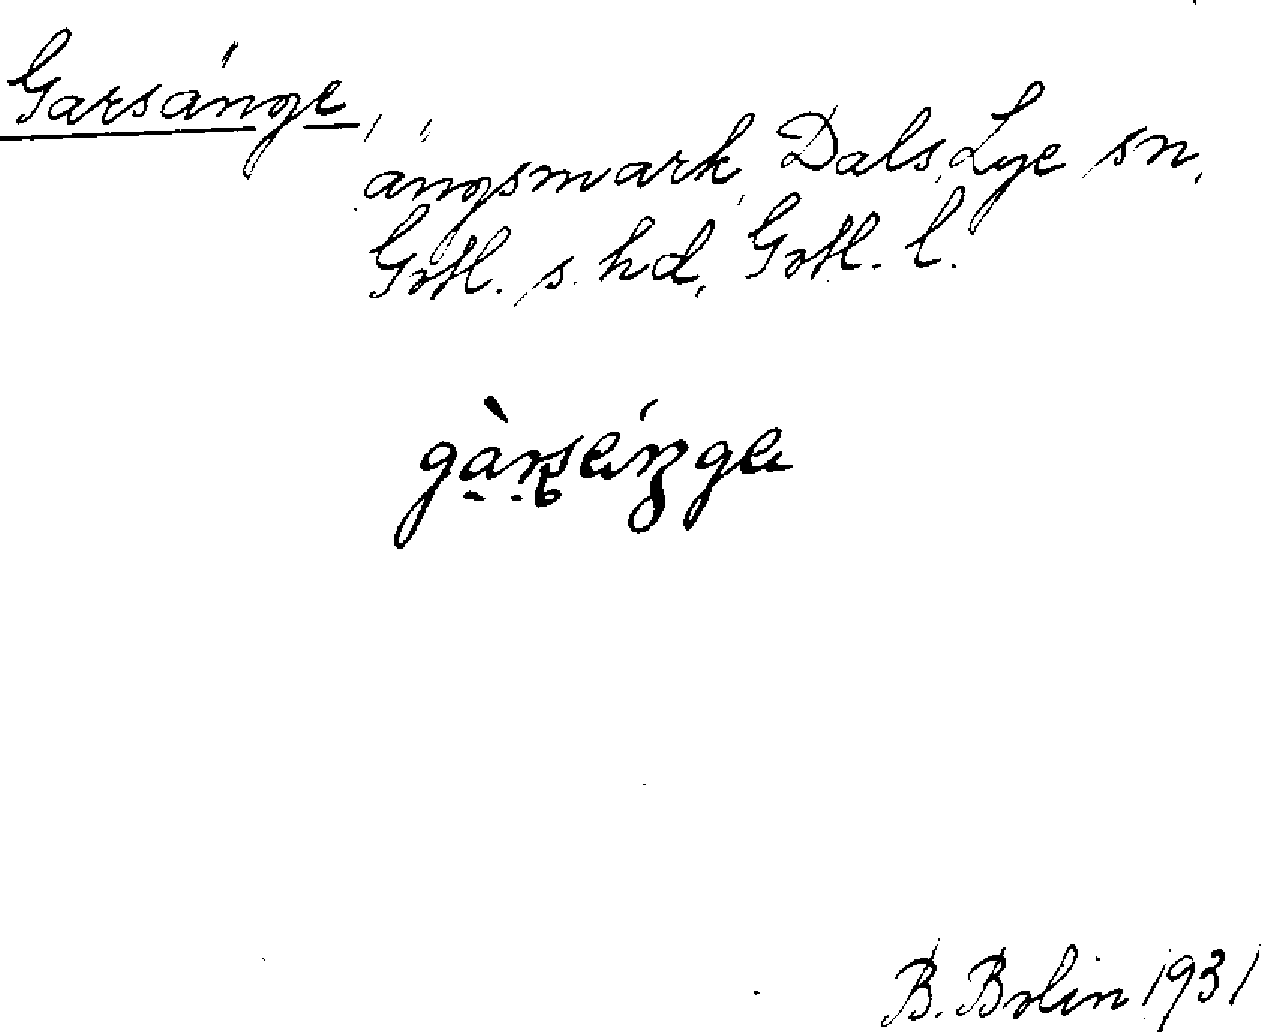 Garsänge,
ängsmark, Dals, Lye sn,
Gotl. s. hd, Gotl. l.
B. Bolin 1931